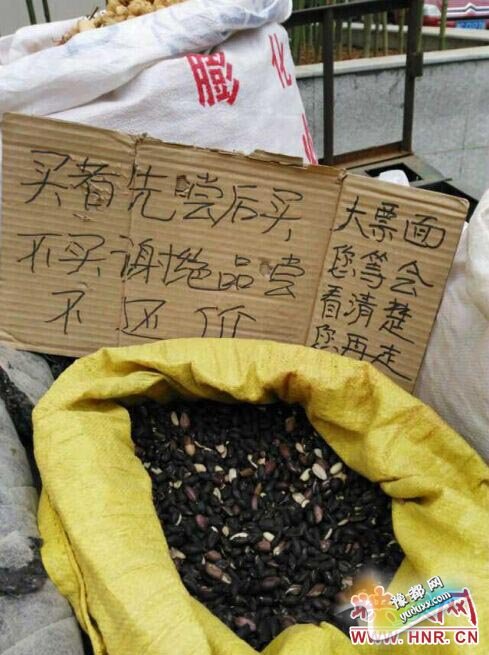 膨化
买者先尝后买
不买谢绝品尝
不还价
大票面
您等会
看清楚
您再走
豫都网
yuduxx.com
WWW.HNR.CN